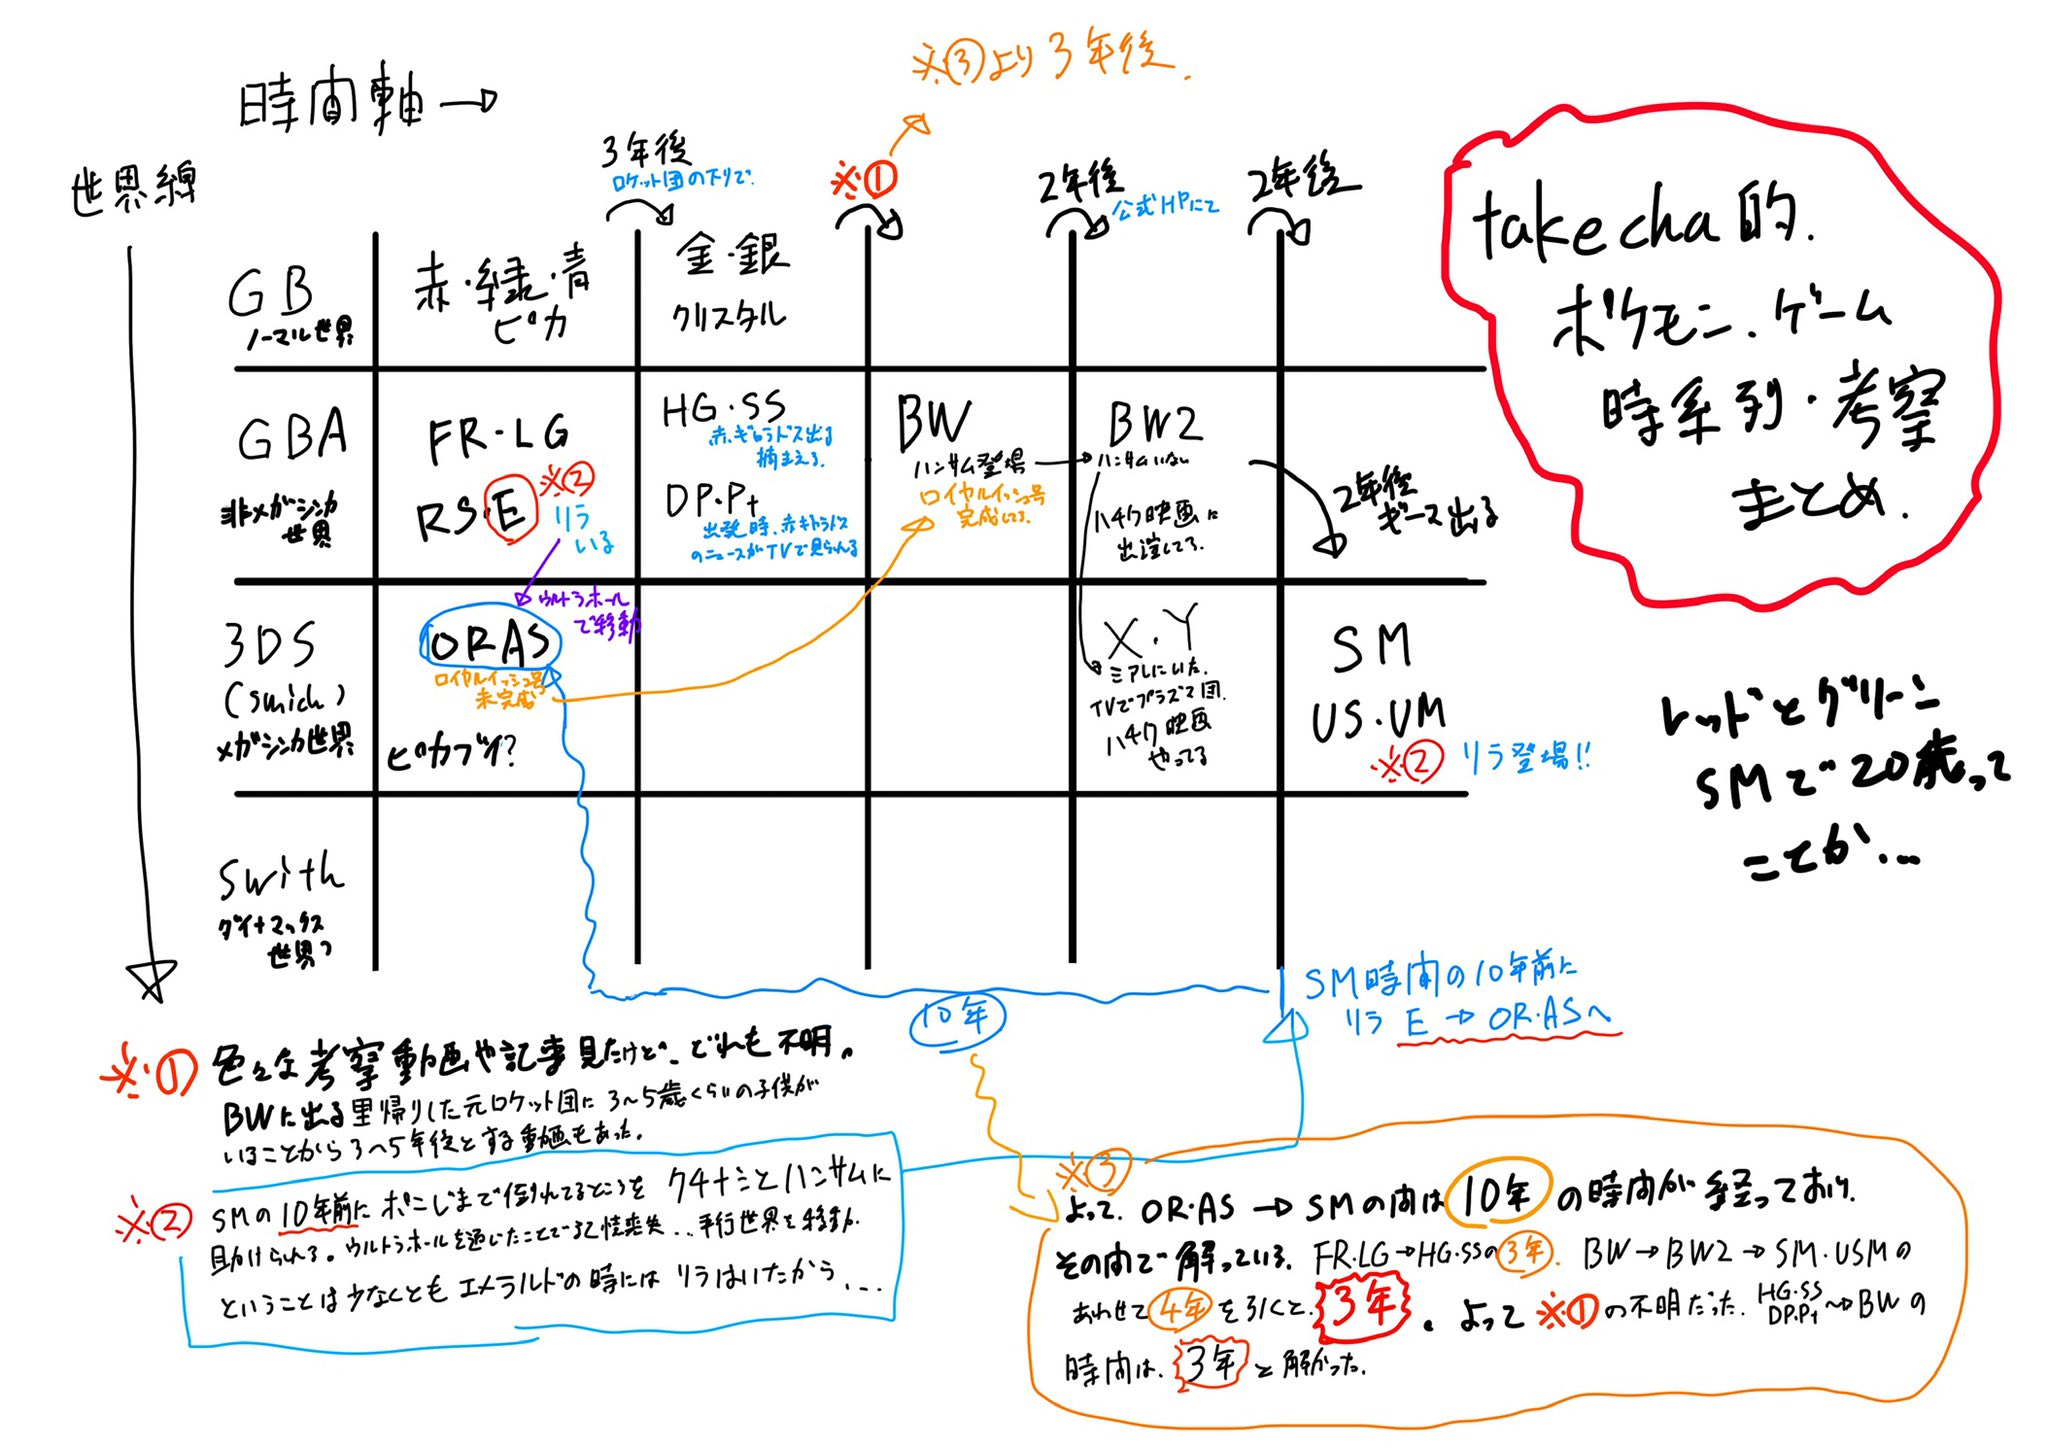 ※③より3年後.
時間軸→
世界線
3年後
ロケット団の下りで.
※①
2年後
公式HPにて
2年後
takecha的.
ポケモン.ゲーム
時系列・考察
まとめ.
GB
ノーマル世界
赤・緑・青
ピカ
金・銀
クリスタル
GBA
非メガシンカ
世界
FR・LG
RS・E
※②
リラ
いる
HG・SS
赤ギャラドス出る
捕まえる.
DP・Pt
出発時、赤ギャラドス
のニュースがTVで見られる
BW
ハンサム登場
ロイヤルイッシュ号
完成してる.
BW2
ハンサムいない
ハチク映画に
出演してる.
2年後
ギース出る
3DS
(swich)
メガシンカ世界
ORAS
ロイヤルイッシュ号
未完成
ウルトラホール
で移動
ピカブイ?
X・Y
ミアレにいた.
TVでプラズマ団.
ハチク映画
やってる
SM
US・UM
※② リラ登場!!
レッドとグリーン
SMで20歳って
ことか...
Swith
ダイナマックス
世界?
10年
SM時間の10年前に
リラ E→OR・ASへ
※① 色々な考察動画や記事見たけど、どれも不明。
BWに出る里帰りした元ロケット団に3~5歳くらいの子供が
いることから3~5年後とする動画もあった.
※② SMの10年前にポニじまで倒れてるところを クチナシとハンサムに
助けられる。ウルトラホールを通じたことで記憶喪失...平行世界を移動.
ということは少なくともエメラルドの時にはリラはいたから...
※③
よって. OR・AS→SMの間は10年の時間が経っており.
その中で解っている. FR・LG→HG・SSの3年. BW→BW2→SM・USMの
あわせて4年を引くと. 3年. よって※①の不明だった. HG・SS DP・Pt→BWの
時間は. 3年と解かった.